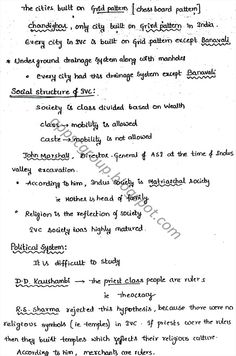 The cities built on Grid pattern [chess board pattern]
Chandighar, only city built on Gried pattern in India.
Every city in SVC is built on Grid pattern except Banavali
* Underground drainage system along with manholes
* Every city had this drainage system except Banavali
Social structure of SVC:
Society is class divided based on wealth
class → mobility is allowed
caste → mobility is not allowed
John Marshall, Director-General of ASI at the time of Indus
valley excavation.
* According to him, Indus society is Matriarchal society
ie Mother is head of family
* Religion is the reflection of society
SVC society was highly matured.
Political System:
It is difficult to study
D.D. Kaushambi → the priest class people are rulers
ie theocracy
R.S. Sharma rejected this hypothesis, because there were no
religious symbols (ie temples) in SVC. If priests were the rulers
then they built temples which reflects their religious culture.
According to him, merchants are rulers.
appsstartup.blogspot.com